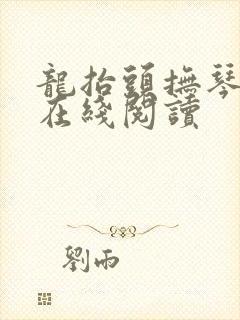 龍抬頭撫琴
在綫閱讀
劉雨